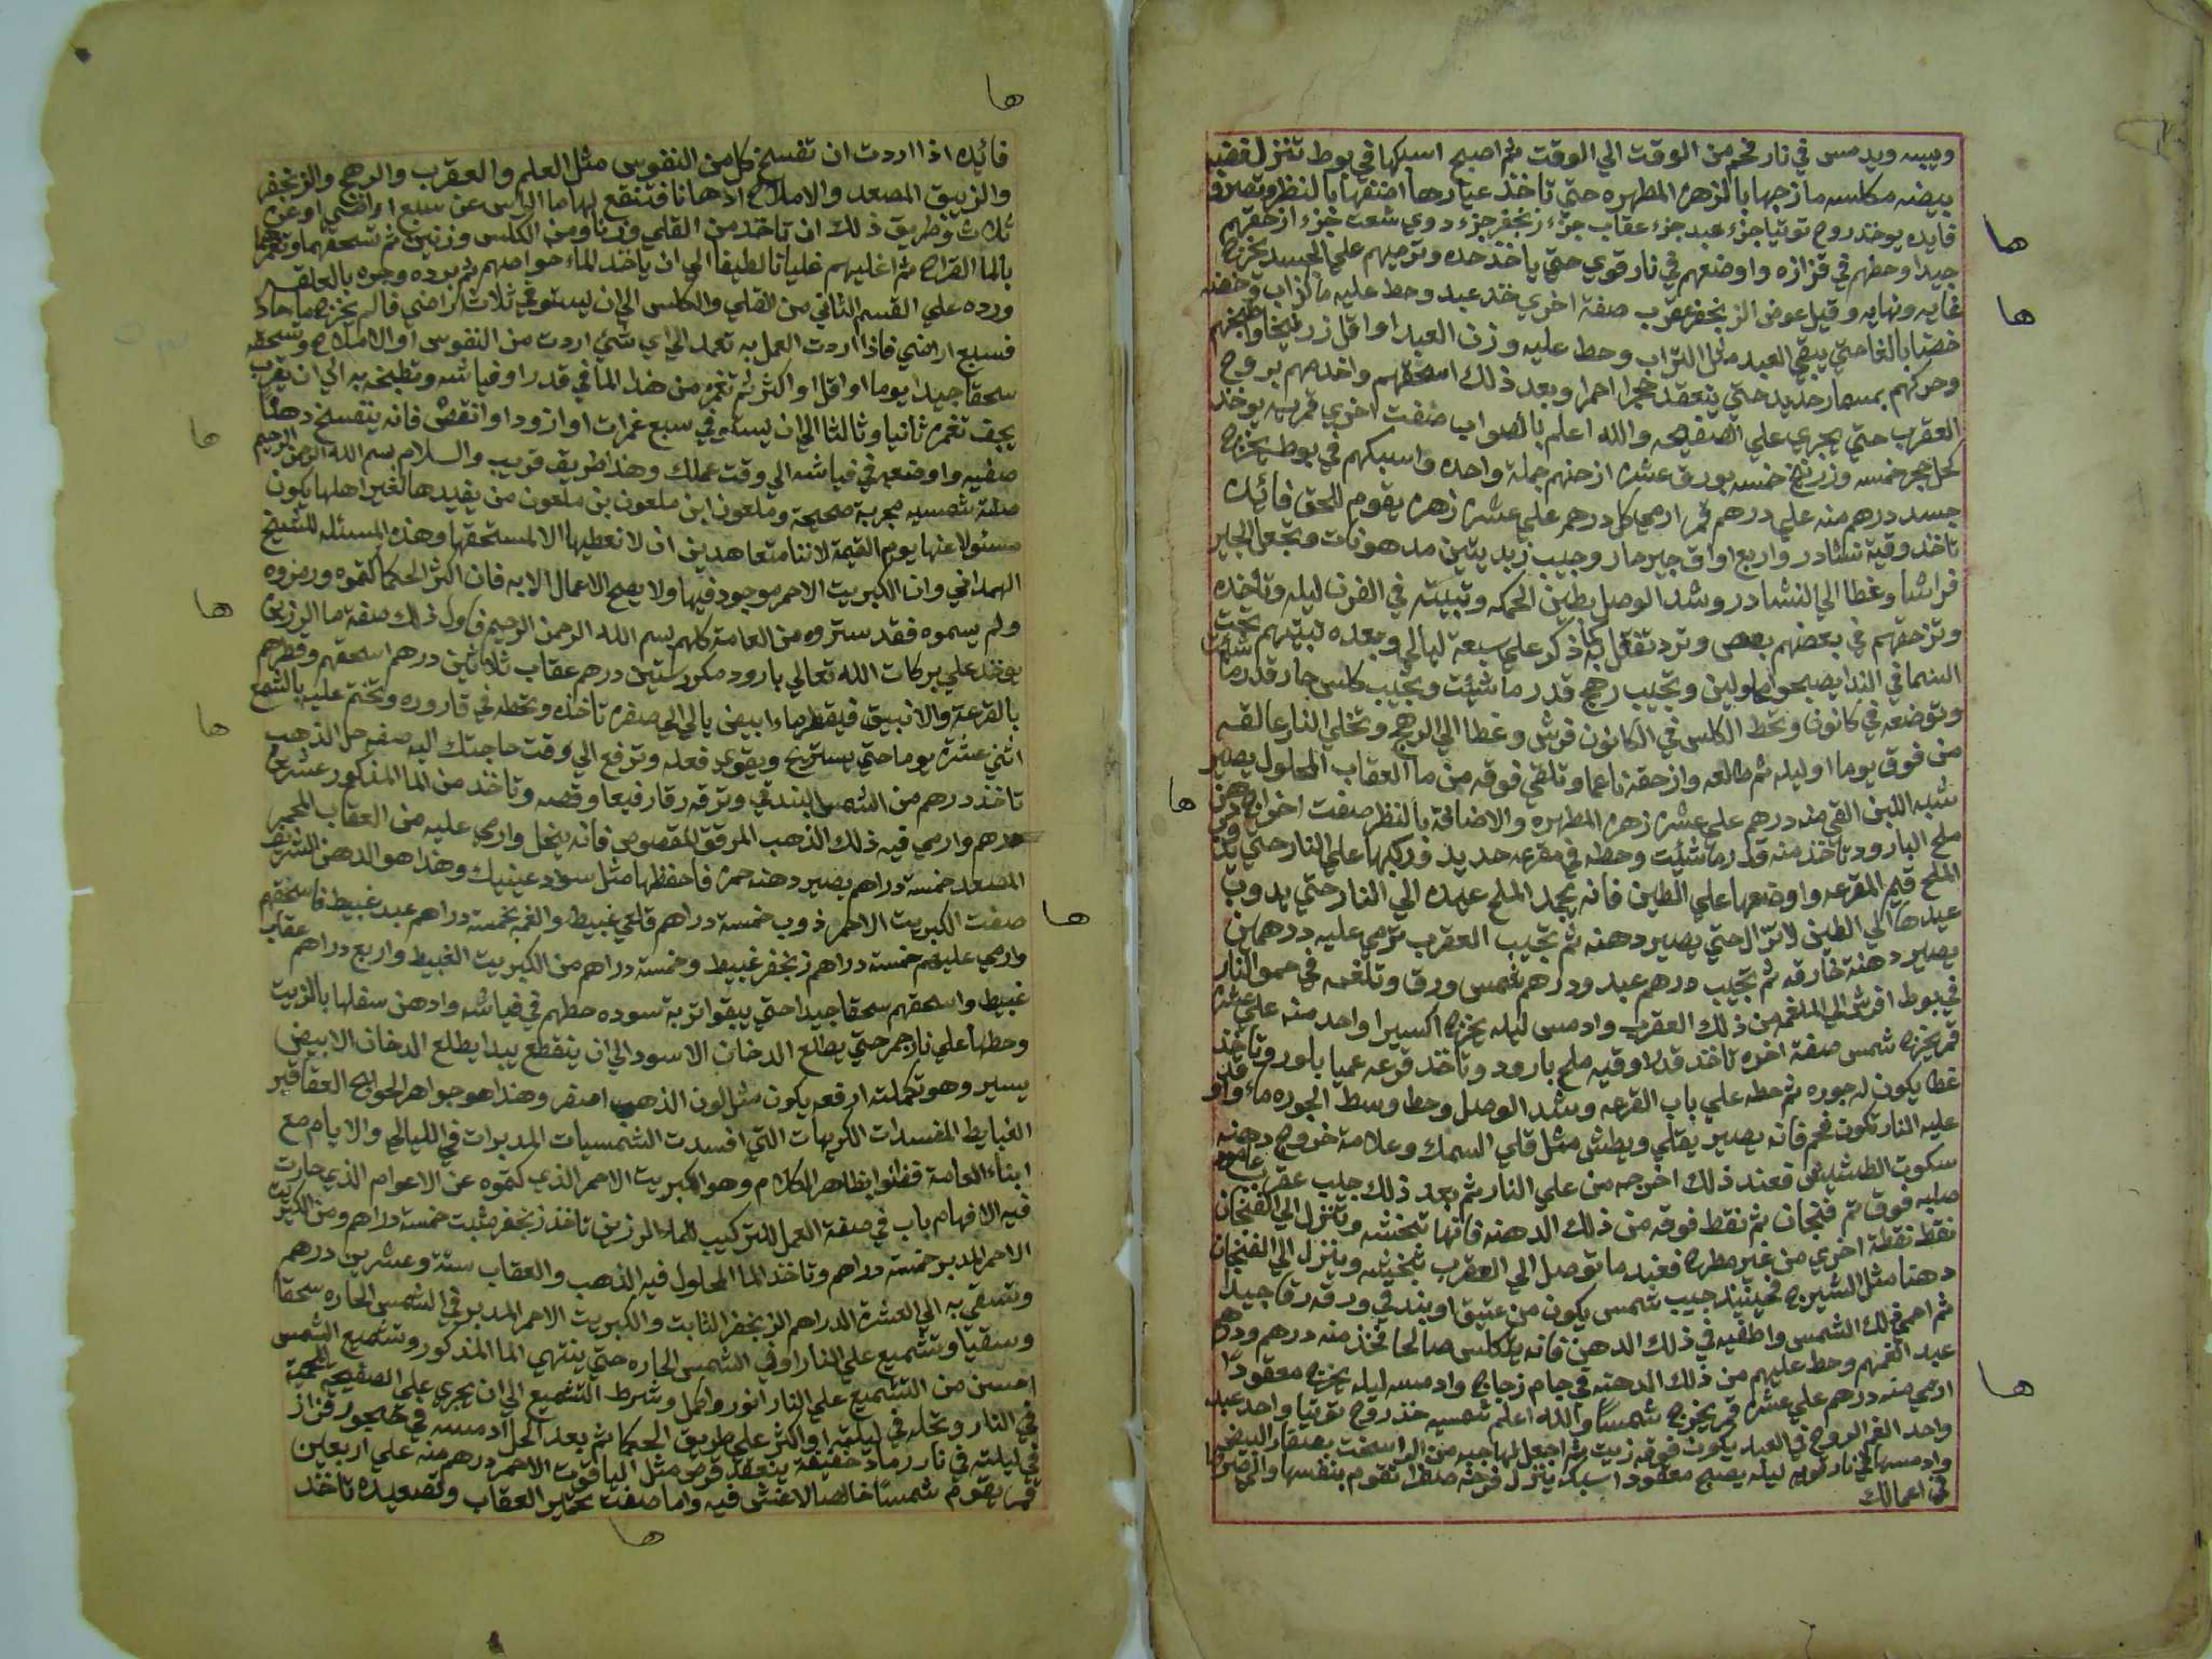 وييبه ويدمس في نار فحم من الوقت الي الوقت ثم اصبح اسبكها في بوط تنزل فضه
بيضه مكلسه مازجها بالزهره المطهره حتي تاخذ عيارها اضفها بالنظر وتصرف
فايده يوخذ روح توتيا جزء عبد جزء عقاب جزء زنجفر جزء دوي شعت جزء ازحقهم
جيدا وحطهم في قزازه واوضعهم في نار قوي حتي ياخذ حده وترميهم علي الجسد يخرج
غايه ونهايه وقيل عوض الزنجفر عقرب صفة اخري خذ عبد وحط عليه ما كزاب وخضه
خضا بالغا حتي يبقي العبد مثل التراب وحط عليه وزن العبد او اقل زرنيخا واطبخهم
وحركهم بمسمار حديد حتي ينعقد حجرا احمرا وبعد ذلك اسحقهم واخدمهم بروح
العقرب حتي يجري علي الصفيحه والله اعلم بالصواب صفت اخري قمريه يوخذ
كحل حجر خمسه وزرنيخ خمسه بورق عشره ازحنهم جملة واحده واسبكهم في بوط يخرج
جسد درهم منه علي درهم ثم ارمي كل درهم علي عشره زهره يقوم للحق فائده
تاخذ وقية نشادر واربع اواق جير حار وجيب زبديتين مدهونات وتجعل الجير
فراشا وغطا الي النشادر وشد الوصل بطين الحكمه وتبيته في الفرن ليله وتاخذه
وتزحقهم في بعضهم بعض وترد تفعل كما ذكر علي سبعة ليالي وبعده تبيتهم تحت
السما في الندا يصبحوا محلولين وتجيب رهج قدر ما شيئت وتجيب كلس حار قدر ما شيئت
وتوضعه في كانون وتحط الكلس في الكانون فرش وغطا الي الرهج وتخلي النار عالقه
من فوق يوما وليله ثم طالعه وازحقه ناعما وتلقي فوقه من ما العقاب المحلول يصير
شبه اللبن القي منه درهم علي عشره زهره المطهره والاضافة بالنظر صفت اخراج دهن
ملح البارود تاخذ منه قدر ما شيئت وحطه في مقرعه حديد وركبها علي النار حتي يذوب
الملح قيم المقرعه واوضعها علي الطين فانه يجمد الملح عيده الي النار حتي يدوب
عيدها الي الطين لا تزال حتي يصير دهنه ثم تجيب العقرب ترمي عليه درهمين
يصير دهنة خارقه ثم تجيب درهم عبد ودرهم شمس ورق وتلغمه في حمو النار
في بوط افرش الي الملغمه من ذلك العقرب وادمس ليله يخرج اكسيرا واحد منه علي عشره
قمر يخرج شمس صفة اخره تاخذ قدر اوقيه ملح بارود وتاخذ قرعه عميا بلور وتاخذ
غطا يكون له جوره ثم حطه علي باب القرعه وشد الوصل وحط وسط الجوره ماء واوقد
عليه النار تكون فحم فانه يصير يقلي ويطش مثل قلي السمك وعلامة خروج دهنه
سكوت الطشيش فعند ذلك اخرجه من علي النار ثم بعد ذلك جيب عقرب
صلبه فوق تم فنجان ثم نقط فوقه من ذلك الدهنه فانها تخشه وتنزل الي الفنجان
نقط نقطة اخري من غير مطره فعند ما توصل الي العقرب تخشه وينزل الي الفنجان
دهنا مثل الشيرج فحينيذ جيب شمس يكون من عتيق او بندقي ورقه رقا جيدا
ثم احمي ذلك الشمس واطفيه في ذلك الدهن فانه يتكلس صالحا فخذ منه درهم ودرهم
عبد الغمهم وحط عليهم من ذلك الدهنه في جام زجاج وادمسه ليله يخرج معقودا
ارمي منه درهم علي عشره قمر يخرج شمسا والله اعلم شمسيه خذ روح توتيا واحد عبد
واحد الغم الروح في العبد يكون فوقه زيت ثم اجعل لها جبه من الراسخت بصفار البيض
وادمسها في نار قويه ليله يصبح معقودا اسبك ينزل فرخه صفرا تقوم بنفسها والصرفها
في اعمالك
ها
ها
ها
ها
فائده اذا اردت ان تفسخ كل من النفوس مثل العلم والعقرب والرهج والزنجفر
والزيبق المصعد والاملاح ادهانا فتنقع لهاما الراس عن سبع اراضي او عن
ثلاث وطريق ذلك ان تاخذ من القلي وزنا ومن الكلس وزنين ثم تسحقهما وتغمرهما
بالما القراح ثم اغليهم غليانا لطيفا الي ان ياخذ الماء خواصهم ثم برده وجره بالعلقه
ورده علي القسم الثاني من القلي والكلس الي ان يستوفي ثلاث اراضي فان لم يخرج ما حاد
فسبع اراضي فاذا اردت العمل به تعمد الي اي شئ اردت من النفوس او الاملاح وتسحقه
سحقا جيدا يوما او اقل او اكثر ثم تغمره من هذا الما في قدر او فياشه وتطبخه به الي ان يقرب
يجف تغمره ثانيا وثالثا الي ان يستوفي سبع غمرات او ازود او انقص فانه ينفسخ دهنا
صفيه واوضعه في فياشه الي وقت عملك وهذا طريق قريب والسلام بسم الله الرحمن الرحيم
صفة شمسيه مجربة صحيحة وملعون ابن ملعون بن ملعون من يفيدها لغير اهلها يكون
مسئولا عنها يوم القيمة لاننا متعاهدين ان لا نعطيها الا لمستحقها وهذه المسئله للشيخ
الهمداني وان الكبريت الاحمر موجود فيها ولا يصح الاعمال الا به فان اكثر الحكما كتموه ورمزوه
ولم يسموه فقد ستروه من العامة كلهم بسم الله الرحمن الرحيم فاول ذلك صفة ما الرزين
يوخذ علي بركات الله تعالي بارود مكرر ستين درهم عقاب ثلاثين درهم اسحقهم وقطرهم
بالقرعة والانبيق فيقطر ماء ابيض يالي الي صفره تاخذه وتحطه في قاروره وتختم عليه بالشمع
اثني عشره يوما حتي يستريح ويقوي فعله وترفع الي وقت حاجتك اليه صفه حل الذهب
تاخذ درهم من الشمس البندقي وترقه رقا رفيعا وقصه وتاخذ من الما المذكور عشرين
درهم وارمي فيه ذلك الذهب المرقق المقصوص فانه ينحل وارمي عليه من العقاب المحمر
المصعد خمسة دراهم يصير دهنه حمره فاحفظها مثل سواد عينيك وهذا هو الدهن الشريف
صفت الكبريت الاحمر ذوب خمسة دراهم قلعي غبيط والغمه بخمسة دراهم عبد غبيط فاسحقهم
وارمي عليهم خمسة دراهم زنجفر غبيط وخمسة دراهم من الكبريت الغبيط واربع دراهم عقاب
غبيط واسحقهم سحقا جيدا حتي يبقوا تربة سوده حطهم في فياشه وادهن سفلها بالزيت
وحطها علي نار جمر حتي يطلع الدخان الاسود الي ان ينقطع يبدا يطلع الدخان الابيض
يسير وهو تكملته ارفعه يكون مثل لون الذهب اصفر وهذا هو جواهر الحوايج العقاقير
الغبايط المفسدات الكريهات اللتي افسدت الشمسيات المدبرات في الليالي والايام مع
ابناء العامة ففتنوا بظاهر الكلام وهو الكبريت الاحمر الذي كتموه عن الاعوام الذي حارت
فيه الافهام باب في صفة العمل للتركيب للماء الرزين تاخذ زنجفر مثبت خمسة دراهم ومن الكبريت
الاحمر المدبر خمسة دراهم وتاخذ الما المحلول فيه الذهب والعقاب ستة وعشرين درهم
وتسقي به الي العشرة الدراهم الزنجفر الثابت والكبريت الاحمر المدبر في الشمس الحاره سحقا
وسقيا وتشميع علي النار او في الشمس الحاره حتي ينتهي الما المذكور وتشميع الشمس
احسن من التشميع علي النار انور واكمل وشرط التشميع الي ان يجري علي الصفيحه المحمية
في النار وتحله في ليلته او اكثر علي طريق الحكما ثم بعد الحل ادمسه في قزاز
في ليلته في نار رماد خفيفة ينعقد قرص مثل الياقوت الاحمر درهم منه علي اربعين
قمر يقوم شمسا خالصا لا غش فيه واما صفت تحمير العقاب وتصعيده تاخذ
ها
ها
ها
ها
ها
ها
ها